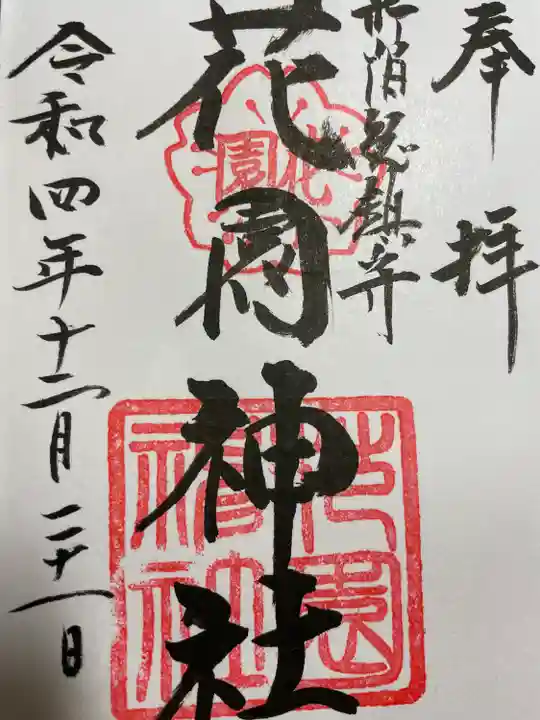 奉拝
新宿総鎮守
花園神社
花園
花園神社
令和四年十二月二十一日